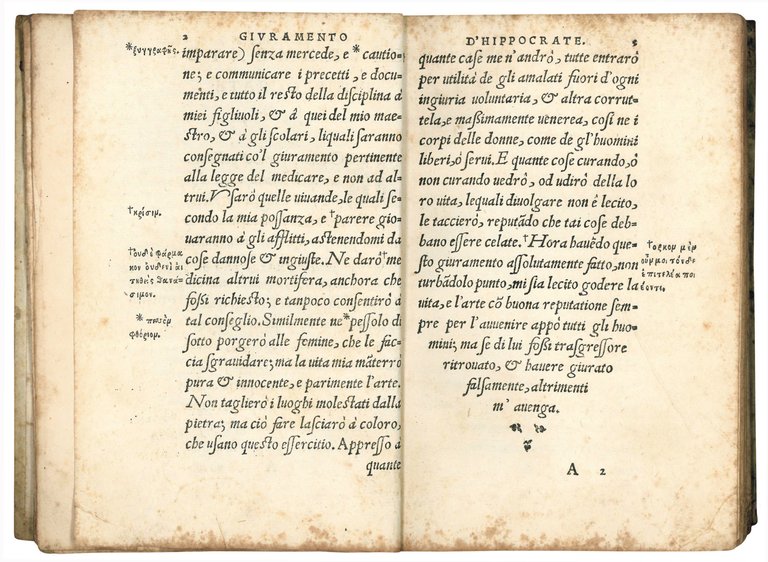 2 GIVRAMENTO
*ξυγγραφῆς.
imparare) senza mercede, e *cautio-
ne; e communicare i precetti, e docu-
mẽti, e tutto il resto della disciplina à
miei figliuoli, & à quei del mio mae-
stro, & à gli scolari, liquali saranno
consegnati co'l giuramento pertinente
alla legge del medicare, e non ad al-
trui. Vsarò quelle uiuande, le quali se-
condo la mia possanza, e †parere gio-
uaranno à gli afflitti, astenendomi da
cose dannose & ingiuste. Ne darò †me
dicina altrui mortifera, anchora che
fossi richiesto; e tanpoco consentirò à
tal conseglio. Similmente ne *pessolo di
sotto porgerò alle femine, che le fac-
cia sgrauidare; ma la uita mia mãterrò
pura & innocente, e parimente l'arte.
Non taglierò i luoghi molestati dalla
pietra; ma ciò fare lasciarò à coloro,
che usano questo essercitio. Appresso à
quante
†κρίσιμ.
†ουδὲ φάρμα
κον ουδενὶ αἰ
τηθεὶς θανά-
σιμον.
φθόριον.
D'HIPPOCRATE.
quante case me n'andrò, tutte entrarò
per utilità de gli amalati fuori d'ogni
ingiuria voluntaria, & altra corrut-
tela, e maßimamente uènerea, così ne i
corpi delle donne, come de gl'huomini
liberi, ò serui. E quante cose curando, ò
non curando uedrò, od udirò della lo
ro uita, lequali diuolgare non è lecito,
le taccierò, reputãdo che tai cose deb-
bano essere celate. †Hora hauẽdo que-
sto giuramento assolutamente fatto, non
turbãdolo punto, mi sia lecito godere la
uita, e l'arte cõ buona reputatione sem-
pre per l'auuenire appò tutti gli huo-
mini; ma se di lui fossi trasgressore
ritrouato, & hauere giurato
falsamente, altrimenti
m' auenga.
†ορκον μὲν
A 2